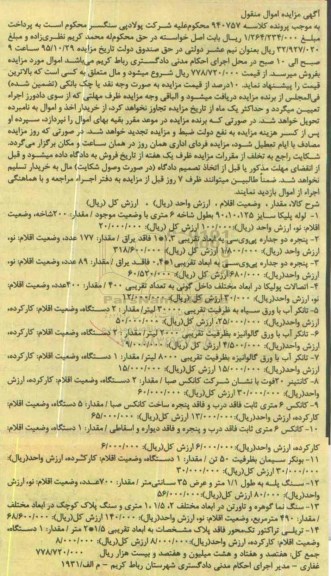 آگهی مزایده اموال منقول
به موجب پرونده کلاسه ۹۴۰۷۵۷ محکوم‌علیه شرکت پولادپی سنگسر محکوم است به پرداخت
مبلغ ۱/۲۶۴/۲۳۴/۰۰۰ ریال بابت اصل خواسته در حق محکوم‌له محمد کریم نظری‌زاده و مبلغ
۲۲/۹۲۷/۰۲۰ ریال بعنوان نیم عشر دولتی در حق صندوق دولت تاریخ مزایده ۹۵/۱۰/۲۹ ساعت ۹
صبح الی ۱۰ صبح در محل اجرای احکام مدنی دادگستری رباط کریم می‌باشد اموال مورد مزایده
بفروش میرسد. از قیمت ۷۷۸/۷۲۰/۰۰۰ ریال شروع میشود و مال متعلق به کسی است که بالاترین
قیمت را پیشنهاد نماید. ۱۰درصد از قیمت مزایده به صورت وجه نقد یا چک بانکی (تضمین شده)
فی‌المجلس از برنده مزایده دریافت میشود و الباقی وجه مزایده ظرف مهلتی که از سوی دادورز اجراء
تعیین میگردد و حداکثر یک ماه از تاریخ مزایده تجاوز نخواهد کرد، از خریدار اخذ و اموال به نامبرده
تحویل خواهد شد. در صورتی که برنده مزایده در موعد مقرر بقیه بهای اموال را نپردازد، سپرده او
پس از کسر هزینه مزایده به نفع دولت ضبط و مزایده تجدید خواهد شد. در صورتی که روز مزایده
مصادف با ایام تعطیل شود، مزایده فردای اداری همان روز در همان ساعت و مکان برگزار می‌گردد.
شکایات راجع به تخلف از مقررات مزایده ظرف یک هفته از تاریخ فروش به دادگاه داده میشود و قبل
از انقضای مهلت مذکور یا قبل از اتخاذ تصمیم دادگاه (در صورت وصول شکایت) مال به خریدار تسلیم
نخواهد شد. ضمناً طالبین میتوانند ظرف ۷ روز قبل از مزایده به دفتر اجراء مراجعه و با هماهنگی
اجراء از اموال بازدید نمایند.
شرح کالا، مقدار ، وضعیت اقلام ، ارزش واحد (ریال) ، ارزش کل (ریال)
۱- لوله پلیکا سایز ۹۰،۱۰،۱۲۵ بطول شاخه ۶ متری با وضعیت موجود / مقدار: ۲۰۰شاخه، وضعیت
اقلام: نو، ارزش واحد(ریال): ۱۰۰/۰۰۰ ارزش کل (ریال): ۲۰/۰۰۰/۰۰۰
۲- پنجره دو جداره یو‌وی‌سی به ابعاد تقریبی ۱*۱.۳ فاقد یراق / مقدار: ۱۷۷ عدد، وضعیت اقلام: نو،
ارزش واحد(ریال): ۱/۸۰۰/۰۰۰ ارزش کل (ریال): ۳۱۸/۶۰۰/۰۰۰
۳- پنجره دو جداره یو‌وی‌سی به ابعاد تقریبی فاقد یراق / مقدار: ۸۹ عدد، وضعیت اقلام: نو،
ارزش واحد(ریال): ۶۸۰/۰۰۰ ارزش کل (ریال): ۶۰/۵۲۰/۰۰۰
۴- اتصالات پولیکا در ابعاد مختلف داخل گونی به تعداد تقریبی ۴۰۰ / مقدار: ۴۰۰عدد، وضعیت اقلام:
نو، ارزش واحد(ریال): ۳۰/۰۰۰ ارزش کل (ریال): ۱۲/۰۰۰/۰۰۰
۵- تانکر آب با ورق سیاه به ظرفیت تقریبی ۲۰۰۰۰ لیتر / مقدار: ۲ دستگاه، وضعیت اقلام: کارکرده،
ارزش واحد(ریال): ۲۵/۰۰۰/۰۰۰ ارزش کل (ریال): ۵۰/۰۰۰/۰۰۰
۶- تانکر آب با ورق گالوانیزه بظرفیت تقریبی لیتر / مقدار: ۲ دستگاه، وضعیت اقلام: کارکرده،
ارزش واحد(ریال): ۴/۵۰۰/۰۰۰ ارزش کل (ریال): ۹/۰۰۰/۰۰۰
۷- تانکر آب با ورق گالوانیزه بظرفیت تقریبی ۸۰۰۰ لیتر / مقدار: ۱ دستگاه، وضعیت اقلام: کارکرده،
ارزش واحد(ریال): ۱۵/۰۰۰/۰۰۰ ارزش کل (ریال): ۱۵/۰۰۰/۰۰۰
۸- کانتینر ۲۰فوت با نشان شرکت کانکس صبا / مقدار: ۲ دستگاه، وضعیت اقلام: کارکرده، ارزش
واحد(ریال): ۳۰/۰۰۰/۰۰۰ ارزش کل(ریال): ۶۰/۰۰۰/۰۰۰
۹- کانکس ۶ متری ثابت فاقد درب و فقد پنجره ساخت کانکس صبا / مقدار: ۵ دستگاه، وضعیت اقلام:
کارکرده، ارزش واحد(ریال): ۱۳/۰۰۰/۰۰۰ ارزش کل(ریال): ۶۵/۰۰۰/۰۰۰
۱۰- کانکس ۶ متری ثابت فاقد درب و پنجره و فاقد دیواره و اسقاطی / مقدار: ۱ دستگاه، وضعیت اقلام:
کارکرده، ارزش واحد(ریال): ۶/۰۰۰/۰۰۰ ارزش کل (ریال): ۶/۰۰۰/۰۰۰
۱۱- بونکر سیمان بظرفیت ۵۰ تن / مقدار: ۱ دستگاه، وضعیت اقلام: کارکرده، ارزش واحد(ریال):
۳۰/۰۰۰/۰۰۰ ارزش کل(ریال): ۳۰/۰۰۰/۰۰۰
۱۲- سنگ پله به طول ۱/۱ متر و عرض ۳۵ سانتی‌متر / مقدار: ۷۰۰عدد، وضعیت اقلام: نو، ارزش
واحد(ریال): ۸۰/۰۰۰ ارزش کل(ریال): ۵۶/۰۰۰/۰۰۰
۱۳- سنگ نما گوهره و تاورتن در ابعاد مختلف ۲، ۱/۵، ۱ متری و سنگ پلاک کوچک در ابعاد مختلف
/ مقدار: ۴۹۰ مترمربع، وضعیت اقلام: نو، ارزش واحد(ریال): ۱۴۰/۰۰۰ ارزش کل (ریال): ۶۸/۶۰۰/۰۰۰
۱۴- تریلی تراکتور تکمحور فاقد پلاک مشخصات به ابعاد تقریبی ۲*۱/۵ متر / مقدار: ۱ دستگاه،
وضعیت اقلام: کارکرده، ارزش واحد(ریال): ۸/۰۰۰/۰۰۰ ارزش کل(ریال): ۸/۰۰۰/۰۰۰
جمع کل: هفتصد و هفتاد و هشت میلیون و هفتصد و بیست هزار ریال ۷۷۸/۷۲۰/۰۰۰
غفاری – مدیر اجرای احکام مدنی دادگستری شهرستان رباط کریم – م الف/۱۹۳۱